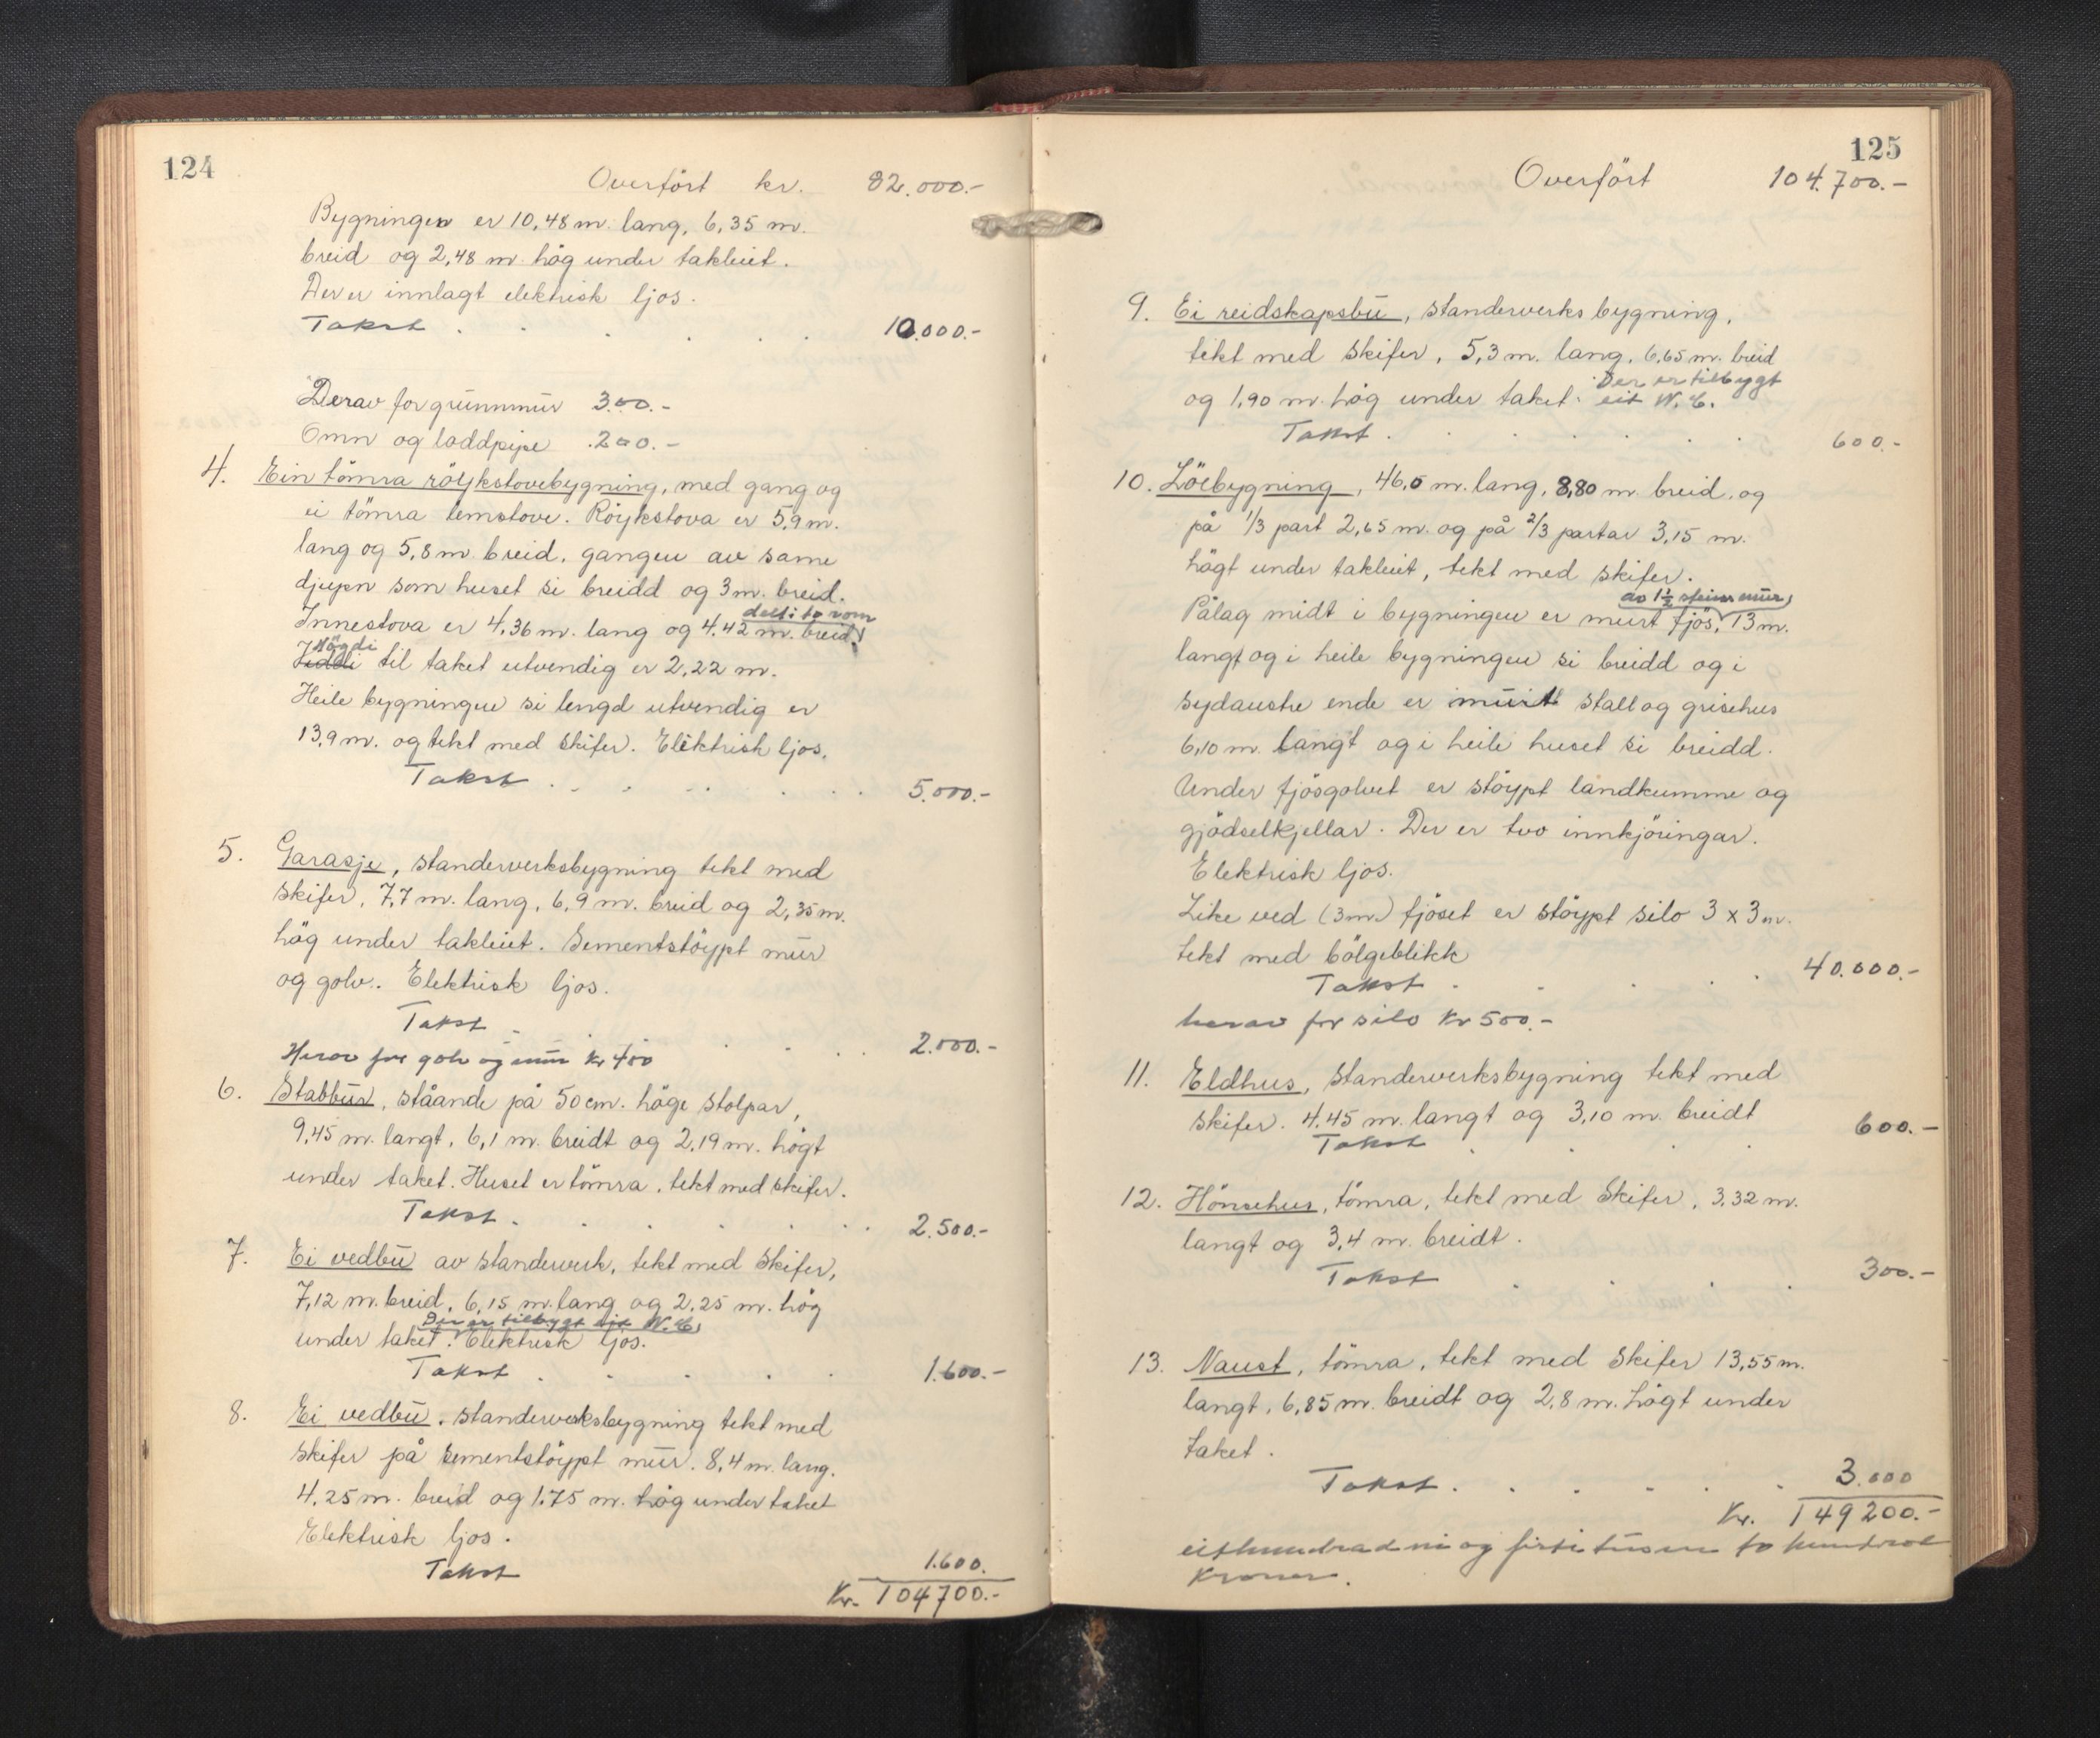 124
Overført kr. 82.000.-
Bygningen er 10,48 m. lang, 6,35 m.
breid og 2,48 m. høg under takleiet.
Der er innlagt elektrisk ljos.
Takst . . . . . 10.000.-
Derav for grunnmur 300.-
Omn og loddpipe 200.-
4. Ein tömra röykstovebygning, med gang og
ei tömra lemstove. Röykstova er 5,9 m.
lang og 5,8 m breid, gangen av same
djupn som huset si breidd og 3 m. breid.
delt i to rom
Innestova er 4,36 m. lang og 4,42 m. breid,
Högdi
til taket utvendig er 2,22 m.
Heile bygningen si lengd utvendig er
13,9 m. og tekt med skifer. Elektrisk ljos.
Takst . . . . . . 5.000.-
5. Garasje, standerverksbygning tekt med
skifer, 7,7 m. lang, 6,9 m. breid og 2,35 m.
høg under takleiet. Sementstöypt mur
og golv. Elektrisk ljos.
Takst . . . . . 2.000.-
Herav for golv og mur kr 400
6. Stabbur, ståande på 50 cm. höge stolpar,
9,45 m. langt, 6,1 m. breidt og 2,19 m. högt
under taket. Huset er tömra, tekt med skifer.
Takst . . . . . . 2.500.-
7. Ei vedbu av standerverk, tekt med skifer,
7,12 m. breid, 6,15 m. lang og 2,25 m. hög
Der er tilbygt eit W.C.
under taket. Elektrisk ljos.
Takst . . . . . 1.600.-
8. Ei vedbu, standerverksbygning tekt med
skifer på sementstöypt mur. 8,4 m. lang,
4,25 m. breid og 1,75 m. høg under taket
Elektrisk ljos.
Takst 1.600.
Kr. 104700.-
125
Overført 104.700.-
9. Ei reidskapsbu, standerverks bygning,
tekt med skifer, 5,3 m. lang, 6,65 m. breid
Der er tilbygt
og 1,90 m. høg under taket. eit W.C.
Takst . . . . . . 600.-
10. Löebygning, 46,0 m. lang, 8,80 m. breid, og
på 1/3 part 2,65 m. og på 2/3 partar 3,15 m.
högt under takleiet, tekt med skifer.
av 1½ steins mur
Pålag midt i bygningen er murt fjös, 13 m.
langt og i heile bygningen si breidd og i
sydaustre ende er murt stall og grisehus
6,10 m. langt og i heile huset si breidd.
Under fjösgolvet er stöypt landkumme og
gjödselkjellar. Der er tvo innkjöringar.
Elektrisk ljos.
Like ved (3 m.) fjöset er stöypt silo 3 x 3 m.
tekt med bölgeblikk
Takst . . . . . 40.000.-
herav for silo Kr 500.-
11. Eldhus, standerverksbygning tekt med
skifer. 4,45 m. langt og 3,10 m. breidt
Takst . . . . 600.-
12. Hönsehus, tömra, tekt med skifer, 3,32 m.
langt og 3,4 m. breidt.
Takst . . . . . 300.-
13. Naust, tömra, tekt med skifer 13,55 m.
langt, 6,85 m. breidt og 2,8 m. högt under
taket.
Takst . . . . . . 3.000
Kr. 149200.-
eithundrad ni og firti tusen to hundrad
kroner.